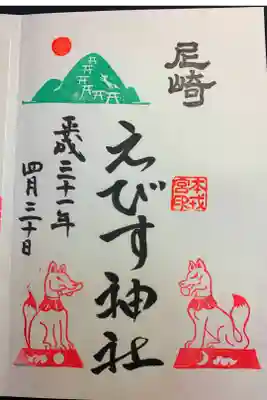 尼崎
えびす神社
平成三十一年
四月三十日